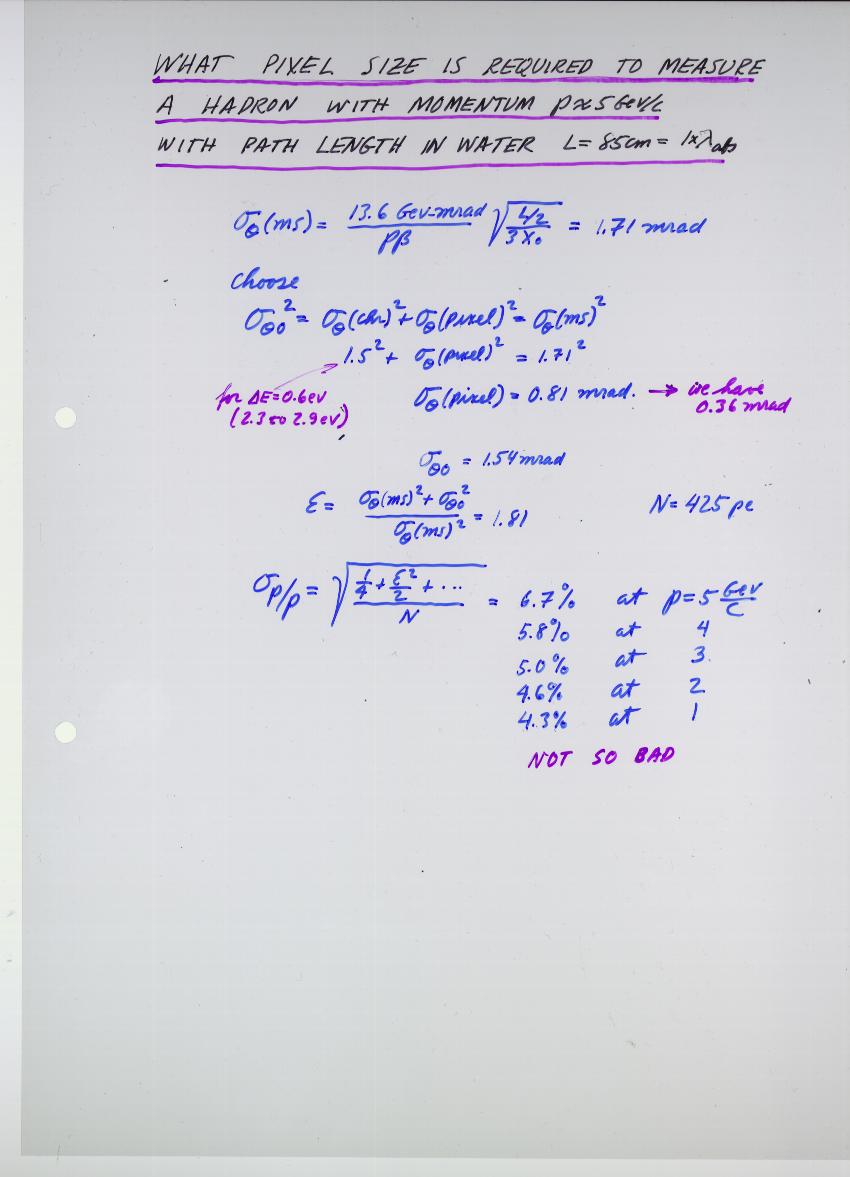 WHAT PIXEL SIZE IS REQUIRED TO MEASURE
A HADRON WITH MOMENTUM p≈5 GeV/c
WITH PATH LENGTH IN WATER L = 85cm = 1×λabs
σθ(ms) = 13.6 GeV-mrad / pβ √(L/2 / 3X₀) = 1.71 mrad
Choose
σθ0² = σθ(chr)² + σθ(pixel)² = σθ(ms)²
1.5² + σθ(pixel)² = 1.71²
for ΔE=0.6ev
(2.3 to 2.9ev)
σθ(pixel) = 0.81 mrad. → we have
0.36 mrad
σθ0 = 1.54 mrad
ε = (σθ(ms)² + σθ0²) / σθ(ms)² = 1.81 N = 425 pe
σp/p = √((1/4 + ε²/2 + ···) / N) = 6.7% at p = 5 GeV/c
5.8% at 4
5.0% at 3
4.6% at 2
4.3% at 1
NOT SO BAD